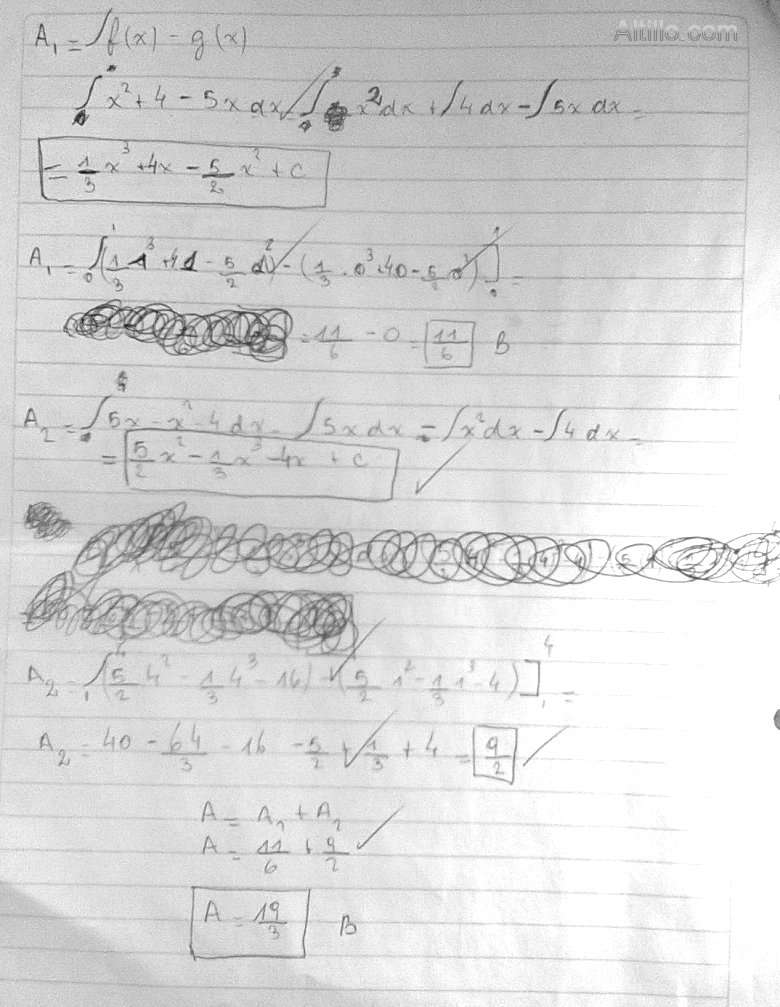 Altillo.com
A₁ = ∫f(x) - g(x)
∫ x² + 4 - 5x dx = ∫ x² dx + ∫4 dx - ∫5x dx =
= 1/3 x³ + 4x - 5/2 x² + C
A₁ = ₀∫¹(1/3 1³ + 4 1 - 5/2 1²) - (1/3 · 0³ + 4 0 - 5/2 0²)]¹₀ =
= 11/6 - 0 = 11/6 B
A₂ = ∫ 5x - x² - 4 dx = ∫5x dx - ∫x² dx - ∫4 dx =
= 5/2 x² - 1/3 x³ - 4x + C
A₂ = ₁∫⁴(5/2 4² - 1/3 4³ - 16) - (5/2 1² - 1/3 1³ - 4)]⁴₁ =
A₂ = 40 - 64/3 - 16 - 5/2 + 1/3 + 4 = 9/2
A = A₁ + A₂
A = 11/6 + 9/2
A = 19/3 B